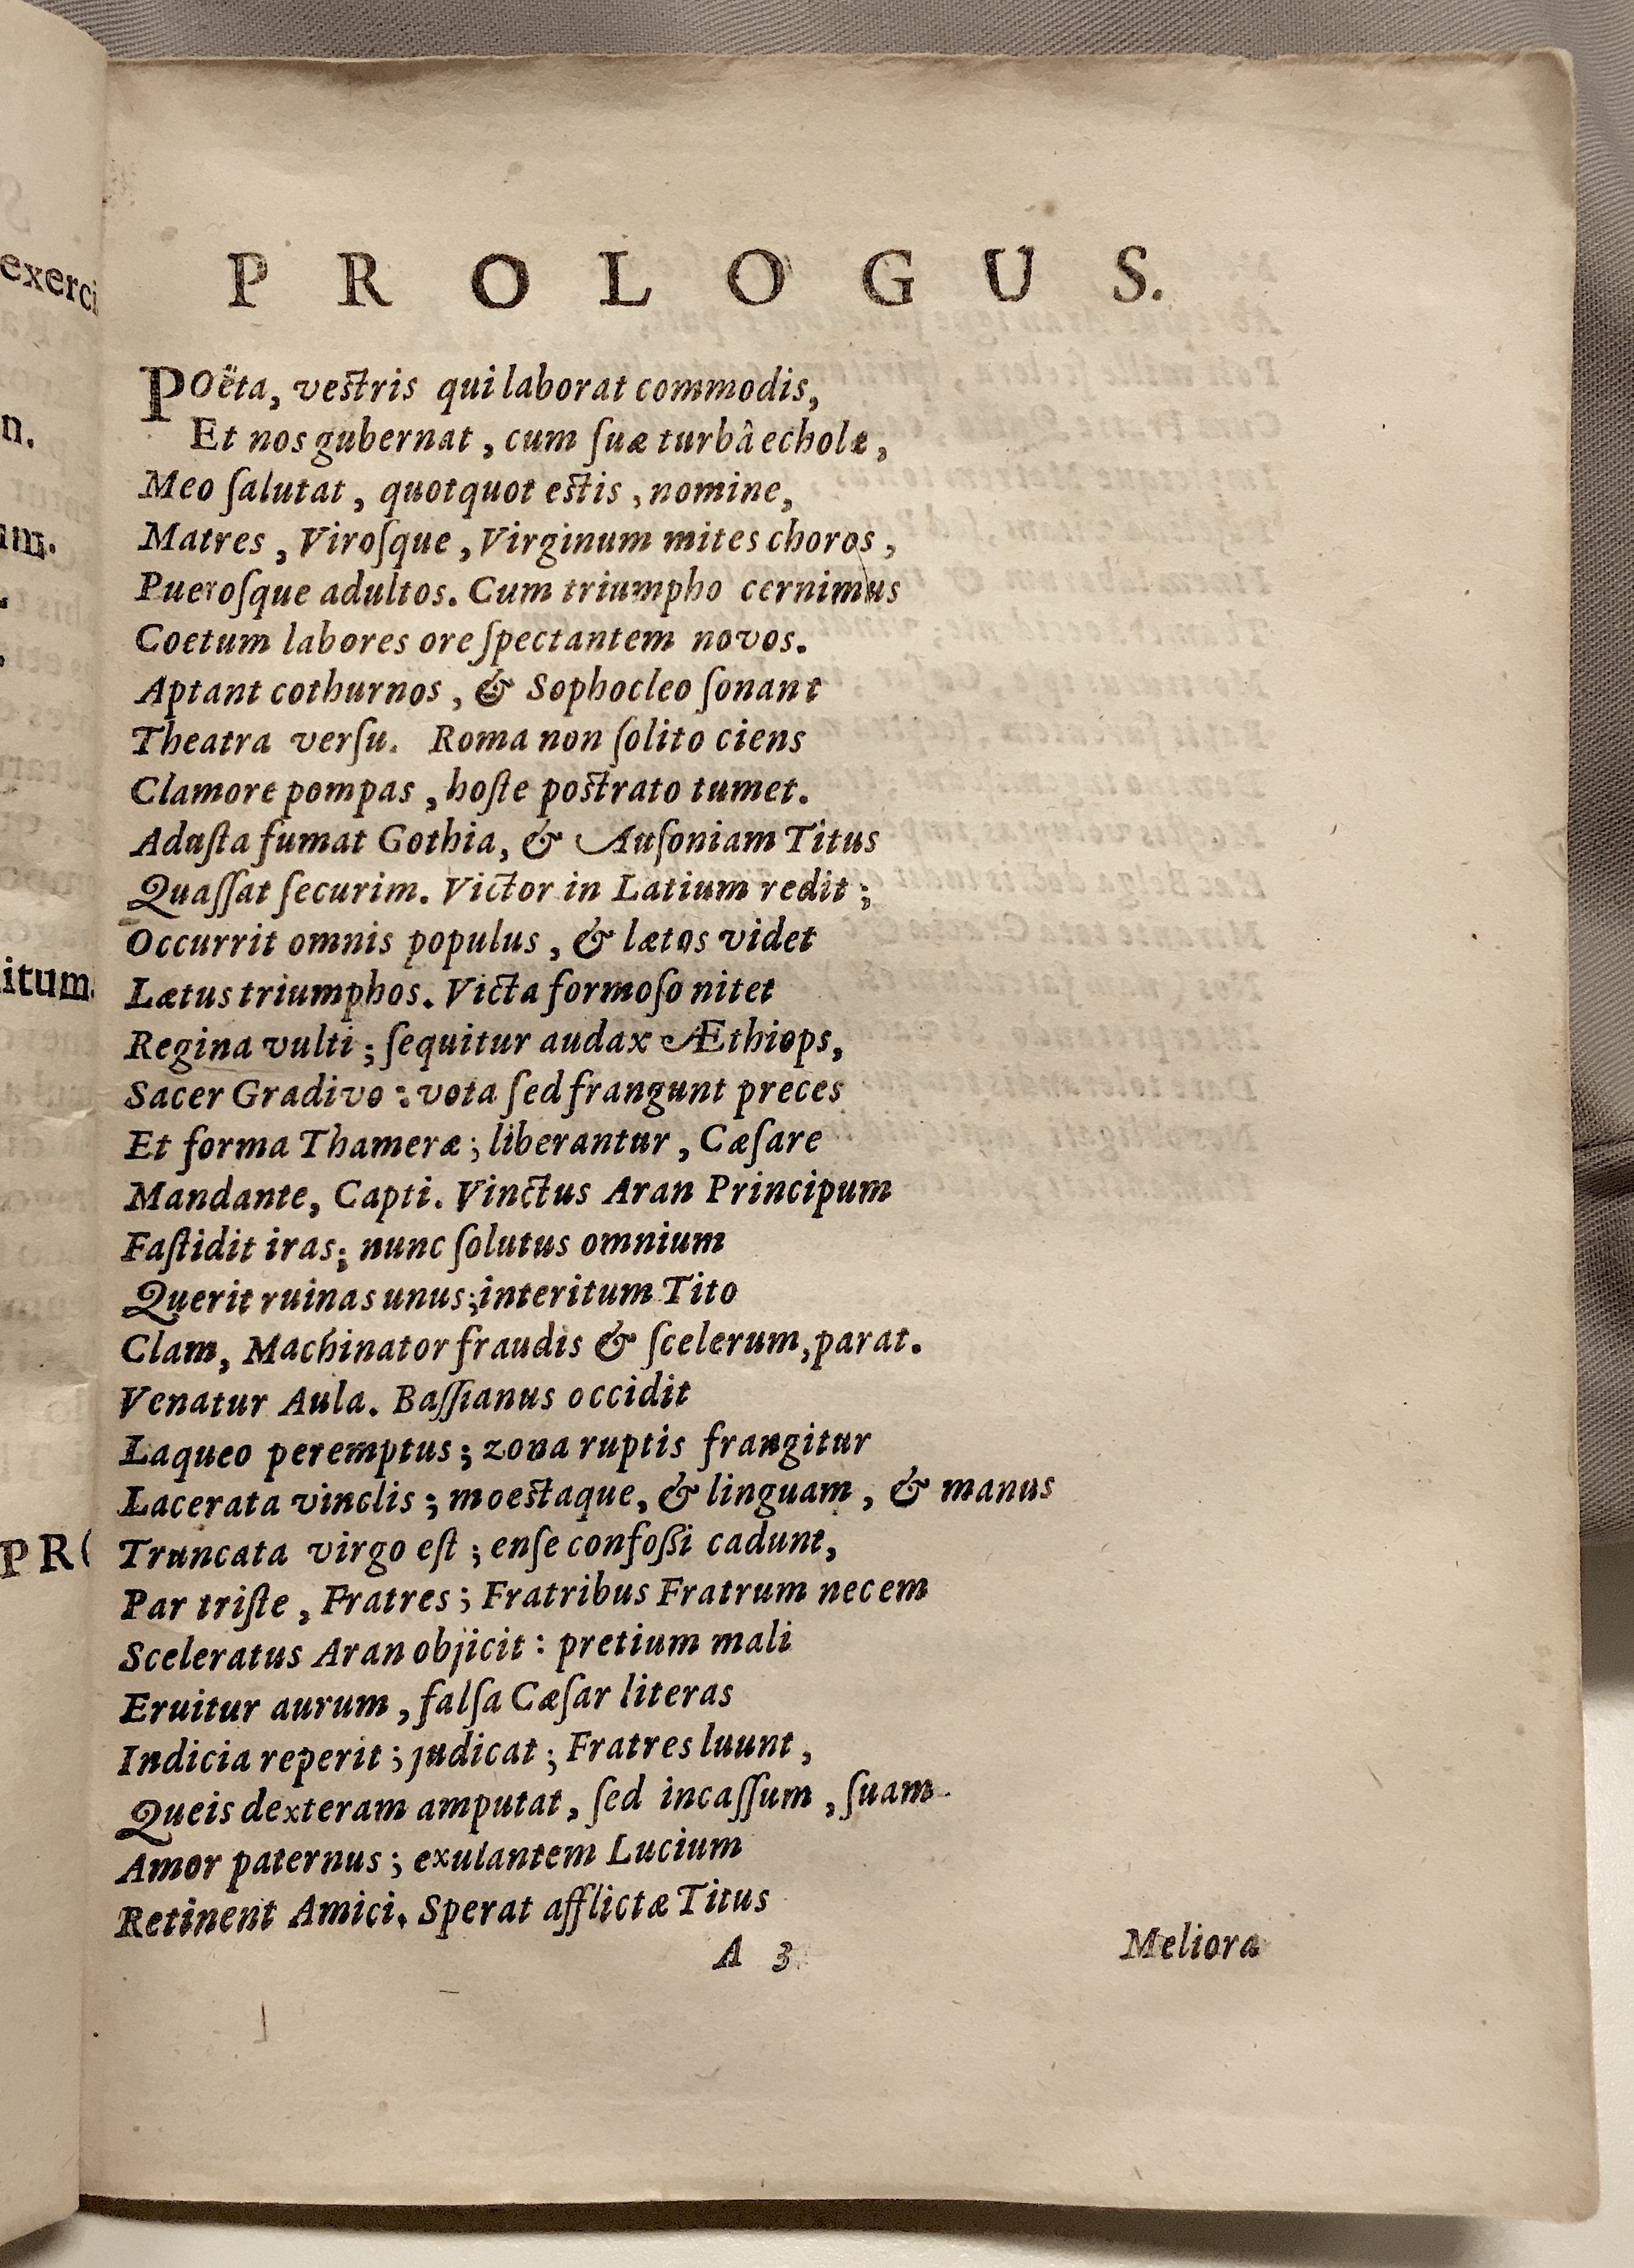 exerci
n.
um.
itum.
PR(
PROLOGUS.
POëta, vestris qui laborat commodis,
Et nos gubernat, cum suæ turbâ echolæ,
Meo salutat, quotquot estis, nomine,
Matres, Virosque, Virginum mites choros,
Puerosque adultos. Cum triumpho cernimus
Coetum labores ore spectantem novos.
Aptant cothurnos, & Sophocleo sonant
Theatra versu. Roma non solito ciens
Clamore pompas, hoste postrato tumet.
Adusta fumat Gothia, & Ausoniam Titus
Quassat securim. Victor in Latium redit;
Occurrit omnis populus, & lætos videt
Lætus triumphos. Victa formoso nitet
Regina vulti; sequitur audax Æthiops,
Sacer Gradivo: vota sed frangunt preces
Et forma Thameræ; liberantur, Cæsare
Mandante, Capti. Vinctus Aran Principum
Fastidit iras; nunc solutus omnium
Querit ruinas unus; interitum Tito
Clam, Machinator fraudis & scelerum, parat.
Venatur Aula. Bassianus occidit
Laqueo peremptus; zona ruptis frangitur
Lacerata vinclis; moestaque, & linguam, & manus
Truncata virgo est; ense confossi cadunt,
Par triste, Fratres; Fratribus Fratrum necem
Sceleratus Aran objicit: pretium mali
Eruitur aurum, falsa Cæsar literas
Indicia reperit; judicat; Fratres luunt,
Queis dexteram amputat, sed incassum, suam
Amor paternus; exulantem Lucium
Retinent Amici. Sperat afflictæ Titus
A 3
Meliora